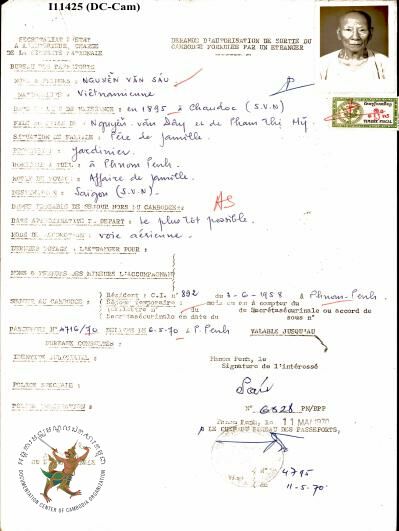 I11425 (DC-Cam)
SECRETARIAT D'ETAT
A L'INTERIEUR, CHARGE
DE LA SURETE NATIONALE
DEMANDE D'AUTORISATION DE SORTIE DU
CAMBODGE FORMULEE PAR UN ETRANGER
BUREAU DES PASSEPORTS
NOM & PRENOMS : NGUYỄN VĂN SÁU
NATIONALITE : Vietnamienne
DATE & LIEU DE NAISSANCE : en 1895 à Chaudoc (S.V.N)
Nguyễn văn Dây et de Phạm thị Mỹ
SITUATION DE FAMILLE : Père de famille
PROFESSION : Jardinier
à Phnom Penh
Affaire de famille
DESTINATION : Saigon (S.V.N)
DUREE PROBABLE DE SEJOUR HORS DU CAMBODGE :
AS
DATE APPROXIMATIVE DU DEPART : le plus tôt possible
MODE DE LOCOMOTION : voie aérienne
DERNIER VOYAGE A L'ETRANGER POUR :
NOMS & PRENOMS DES MINEURS L'ACCOMPAGNANT
Résident : C.I. N° 892 du 3-6-1958 à Phnom-Penh
SEJOUR AU CAMBODGE : Séjour temporaire : mois ou en à compter du
du de Secrétasécurinale ou accord de
Secrétasécurinale en date du sous n°
PASSEPORT N° 4716/70 DELIVRE LE 6-5-70 à P. Penh VALABLE JUSQU'AU
BUREAUX CONSULTES :
IDENTITE JUDICIAIRE :
Phnom Penh, le
Signature de l'intéressé
POLICE SPECIALE :
Sáu
N° 6828 PN/BPP
Phnom Penh, le 11 MAI 1970
LE CHEF DU BUREAU DES PASSEPORTS,
N° 4795
11-5-70
DOCUMENTATION CENTER OF CAMBODIA ORGANIZATION